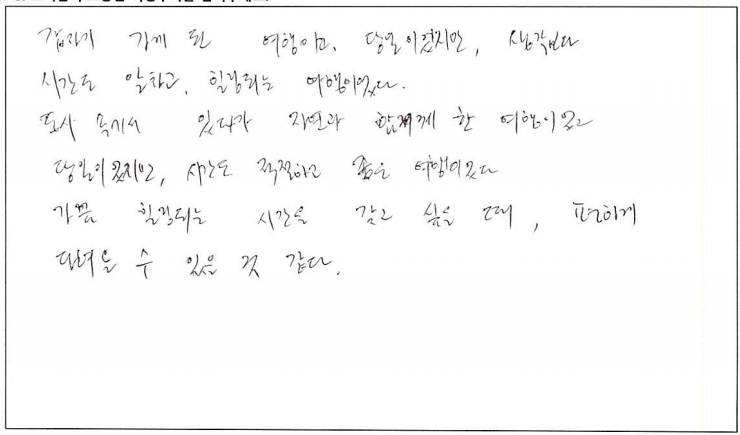 갑자기 가게 된 여행이고, 당일이었지만, 생각보다
시간도 알차고, 힐링되는 여행이었다.
도시 속에서 있다가 자연과 함께 한 여행이었고
당일이었지만, 시간도 적절하고 좋은 여행이었다
가끔 힐링되는 시간을 갖고 싶을 때, 편하게
다녀올 수 있을 것 같다.